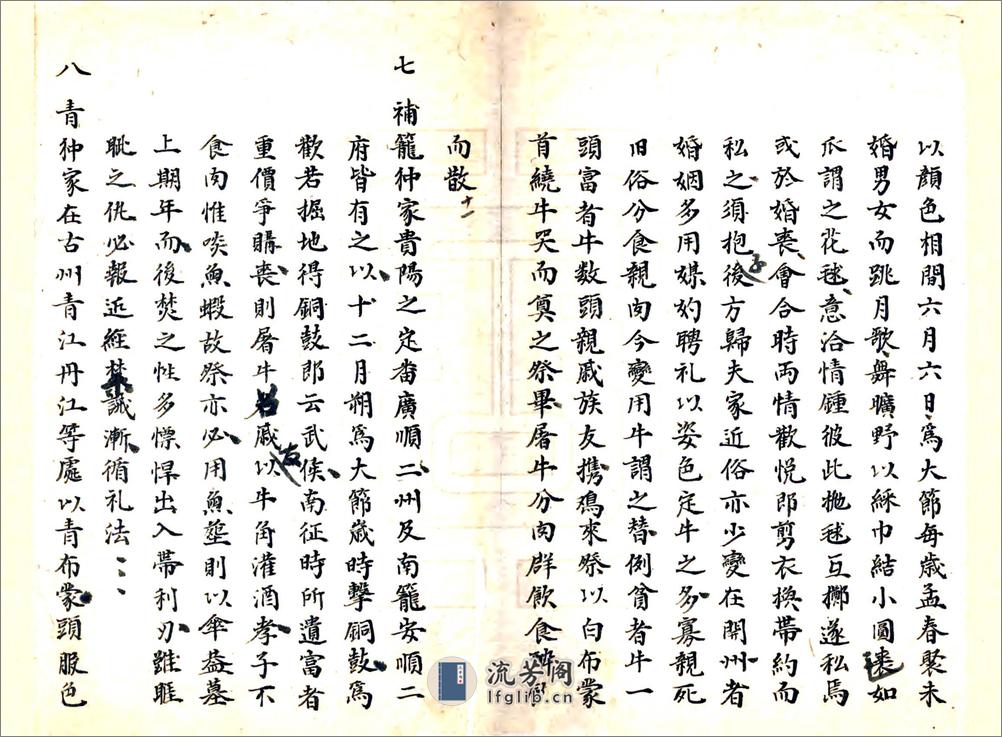 以顏色相間六月六日爲大節每歲孟春聚未
婚男女而跳月歌舞曠野以綵巾結小圓毬如
瓜謂之花毬意洽情鍾彼此拋毬互擲遂私焉
或於婚喪會合時兩情歡悅即剪衣換帶約而
私之須抱子後方歸夫家近俗亦少變在開州者
婚姻多用媒妁聘礼以姿色定牛之多寡親死
旧俗分食親肉今變用牛謂之替例貧者牛一
頭富者牛数頭親戚族友携鴉來祭以白布蒙
首繞牛哭而奠之祭畢屠牛分肉群飲食醉
而散十一
七 補籠狆家貴陽之定畨廣順二州及南籠安順二
府皆有之以十二月朔爲大節歲時擊銅鼓爲
歡若掘地得銅鼓即云武侯南征時所遺富者
重價爭購喪則屠牛召戚友以牛角灌酒孝子不
食肉惟啖魚蝦故祭亦必用魚塟則以傘葢墓
上期年而後焚之性多慓悍出入帶利刃雖睚
眦之仇必報近經禁誡漸循礼法
八 青狆家在古州青江丹江等處以青布蒙頭服色
流芳阁
lfglib.cn